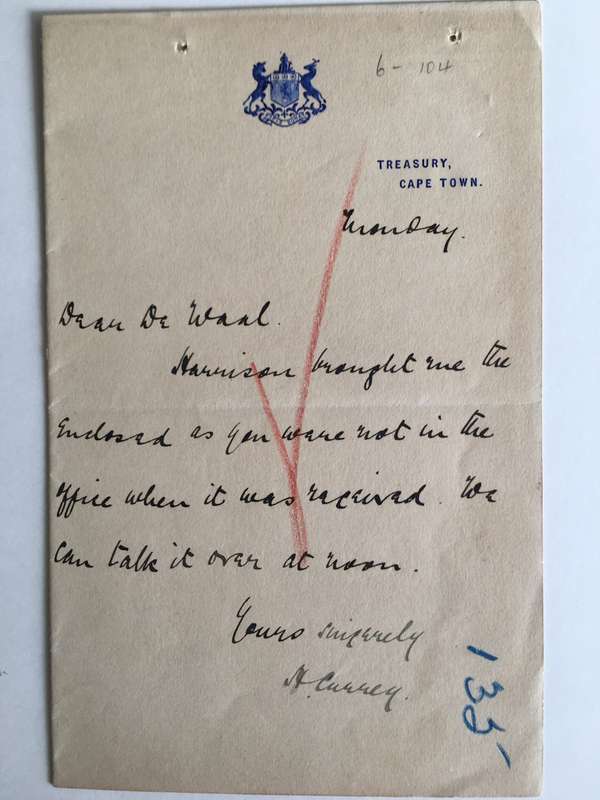 6 - 104
TREASURY,
CAPE TOWN.
Monday.
Dear De Waal.
Harrison brought me the
Enclosed as you were not in the
Office when it was received. We
can talk it over at noon.
Yours sincerely
H. Currey.
135